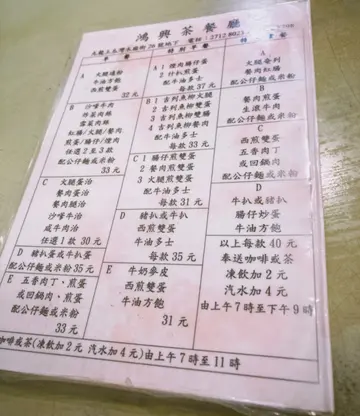 鴻興茶餐廳
早餐
A 火腿通粉
西煎雙蛋
32元
B 沙嗲牛肉
炸菜肉絲
雪菜肉絲
紅腸/火腿/餐肉
煎蛋/腸仔/煙肉
任選2至3款
配公仔麵或米粉
33元
C 火腿蛋治
餐肉蛋治
餐肉腿治
沙嗲牛治
咸牛肉治
任選1款 30元
D 豬扒蛋或牛扒蛋
配公仔麵或米粉35元
E 五香肉丁,煎蛋
或回鍋肉,煎蛋
或餐肉煎蛋
配公仔麵或米粉
33元
特別早餐
A 1 煙肉腸仔蛋
2 仔扒煎蛋
配牛油多士
每款37元
B 1 吉列魚柳火腿
2 吉列魚柳雙蛋
3 吉列魚柳雙腸
4 吉列魚柳餐肉
配牛油多士
每款33元
C 1 腸仔煎雙蛋
2 餐肉煎雙蛋
3 火腿煎雙蛋
配牛油多士
每款31元
D 豬扒或牛扒
西煎雙蛋
牛油多士
每款35元
E 牛奶麥皮
西煎雙蛋
牛油方飽
31元
A
餐肉紅腸
配公仔麵或米粉
B
餐肉煎蛋
生滾牛肉
配公仔麵或米粉
C
西煎雙蛋
五香肉丁
或回鍋肉
配公仔麵或米粉
D
牛扒或豬扒
腸仔炒蛋
牛油方飽
以上每款40元
奉送咖啡或茶
凍飲加2元
汽水加4元
由上午7時至下午9時
咖啡或茶(凍飲加2元 汽水加4元)由上午7時至11時